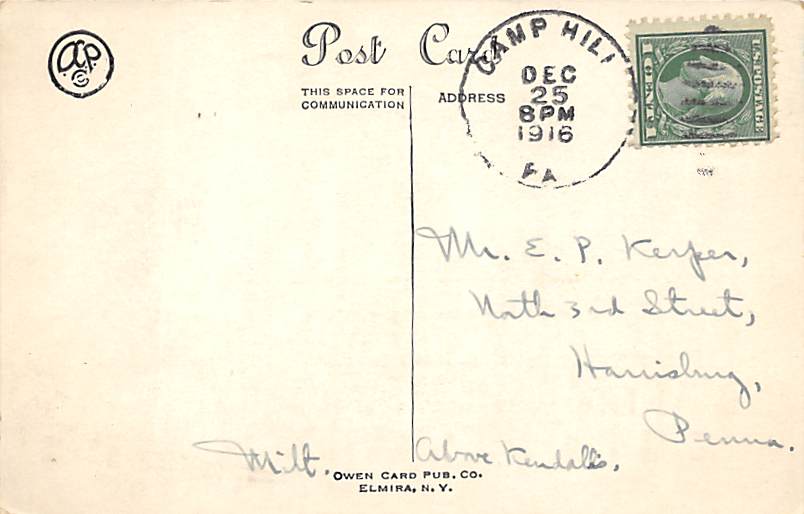 OCP
©
Post Card
THIS SPACE FOR
COMMUNICATION
ADDRESS
CAMP HILL
DEC
25
8 PM
1916
PA
U.S. POSTAGE
1 CENT 1
Mr. E. P. Kerper,
North 3rd Street,
Harrisburg,
Penna.
Milt.
Above Kendall's.
OWEN CARD PUB. CO.
ELMIRA, N. Y.